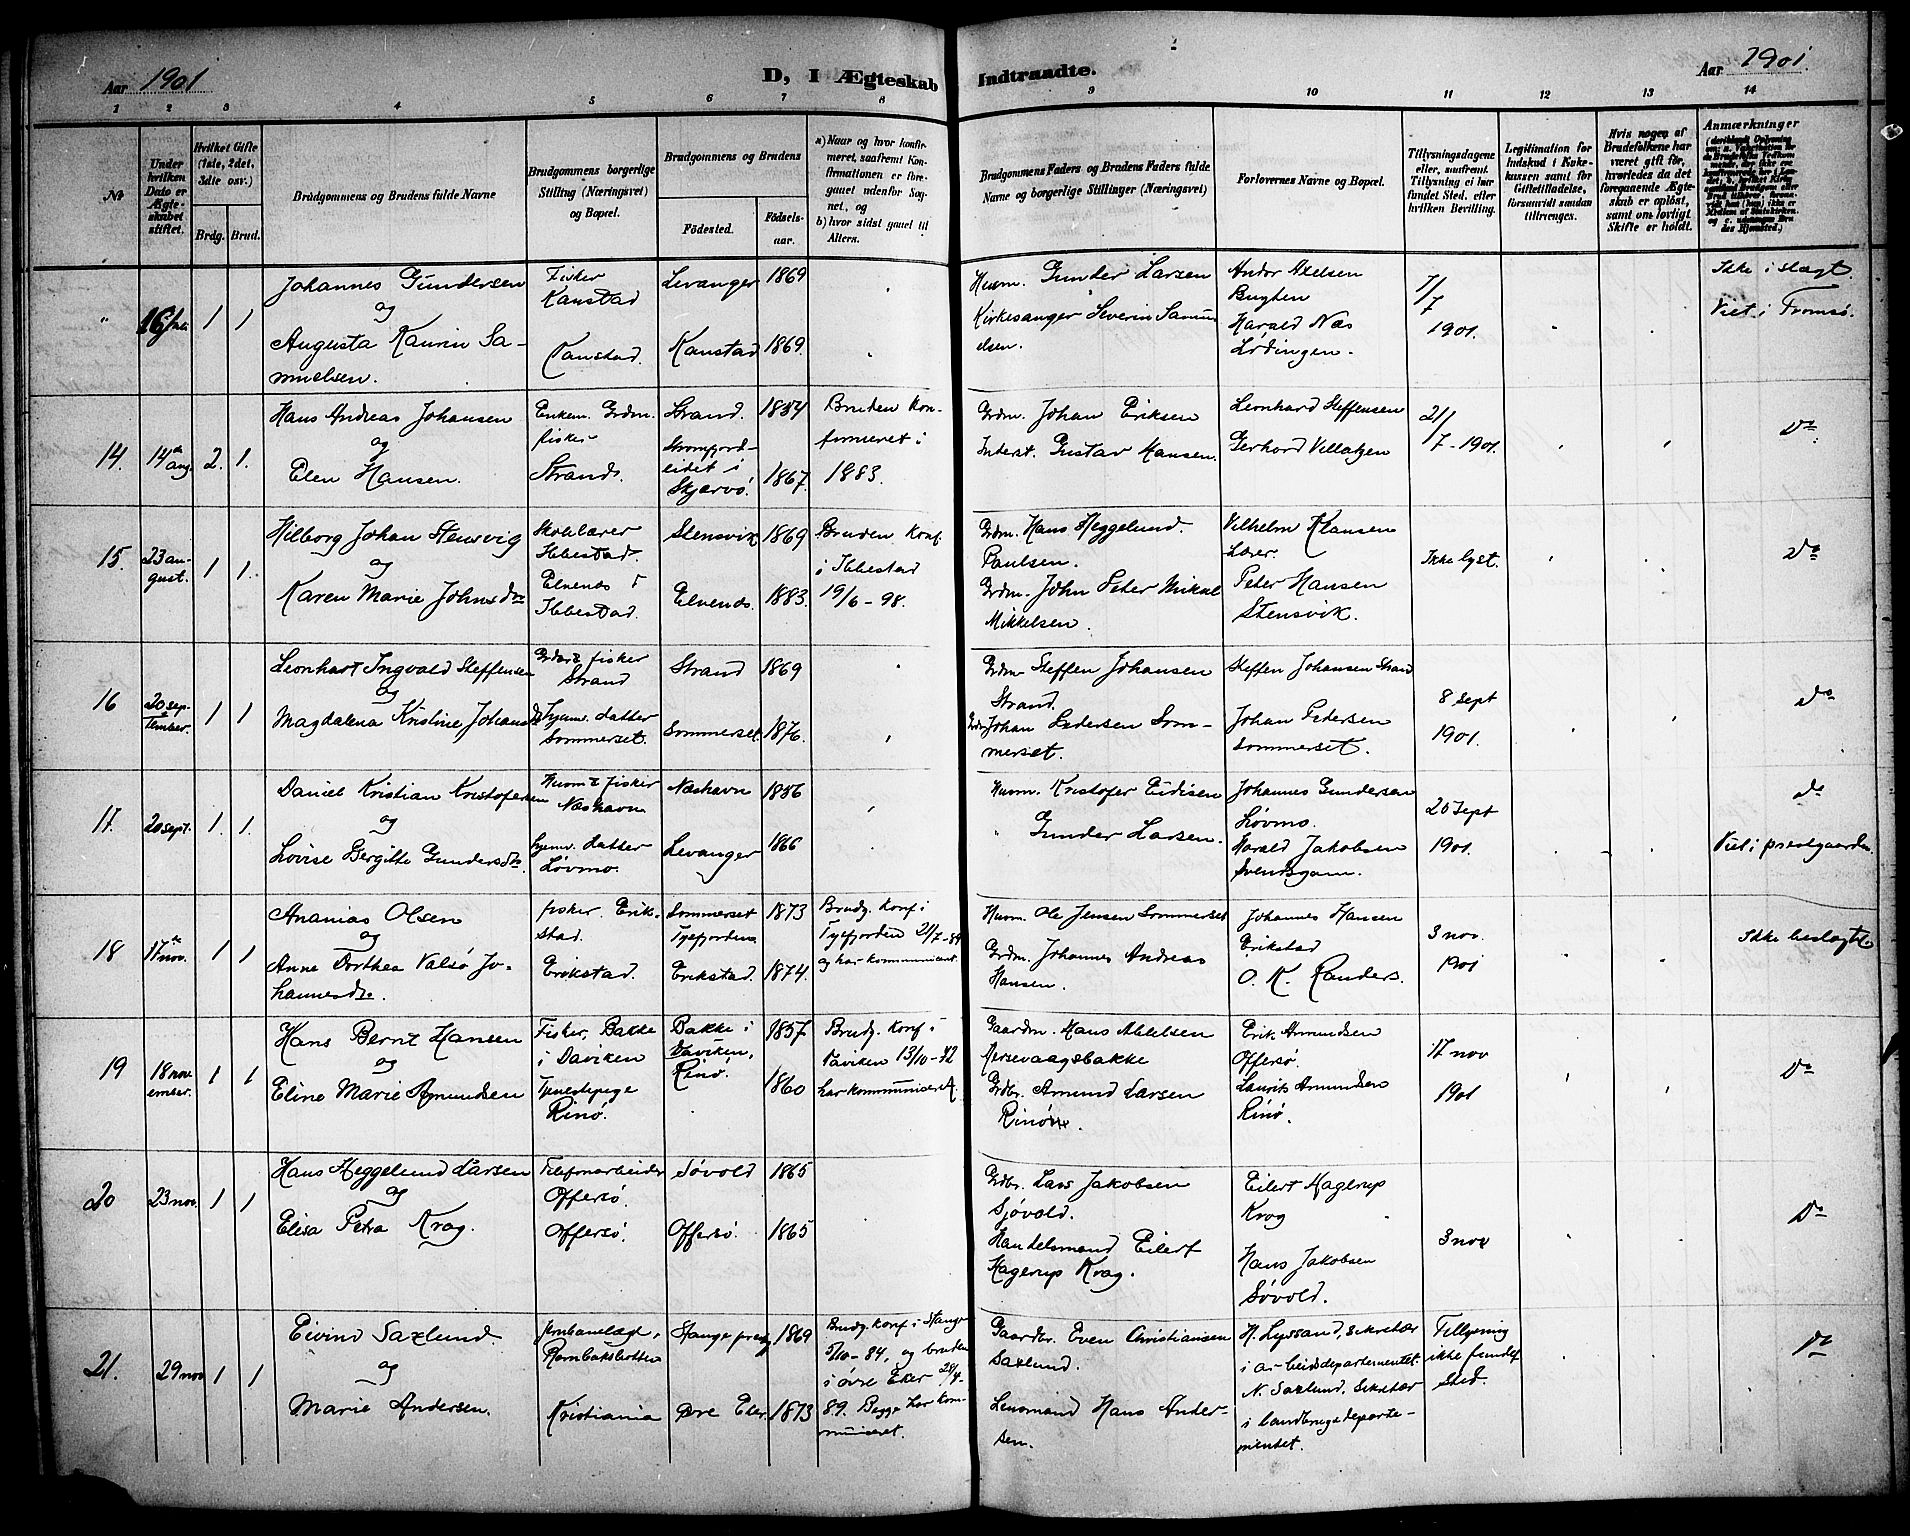 Aar 1901
D, I Ægteskab Indtraadte.
Aar 1901.
1 2 3 4 5 6 7 8 9 10 11 12 13 14
Nr
Under hvilken Dato er Ægteskabet stiftet.
Hvilket Gifte (1ste, 2det, 3die osv.)
Brdg. Brud.
Brudgommens og Brudens fulde Navne
Brudgommens borgerlige Stilling (Næringsvei) og Bopæl.
Brudgommens og Brudens
Fødested. Fødselsaar.
a) Naar og hvor konfirmeret, saafremt Konfirmationen er foregaaet udenfor Sognet, og
b) hvor sidst gaaet til Alters.
Brudgommens Faders og Brudens Faders fulde Navne og borgerlige Stillinger (Næringsvei)
Forlovernes Navne og Bopæl.
Tillysningsdagene eller, saafremt Tillysning ei har fundet Sted, efter hvilken Bevilling.
Legitimation for Indskud i Enkekassen samt for Giftetilladelse, forsaavidt saadan tiltrænges.
Hvis nogen af Brudefolkene har været gift før, hvorledes da det foregaaende Ægteskab er opløst, samt om lovligt Skifte er holdt.
Anmærkninger
" 16/ 1 1
Johannes Gundersen
og
Augusta Kaurin Samuelsen.
Fisker
Kanstad
Kanstad.
Levanger 1869
Kanstad 1869.
Husm. Gunder Larsen
Kirkesanger Severin Samuelsen.
Andor Axelsen
Bugten
Harald Næs
Lødingen.
7/7
1901.
Ikke i slægt.
Viet i Tromsø.
14. 14de aug. 2. 1.
Hans Andreas Johansen
og
Elen Hansen.
Enkem. Grdm.
fisker
Strand.
Strand. 1834
Skjærvø. 1867.
Bruden konfirmeret i
1883.
Grdm. Johan Eriksen
Inderst. Gustav Hansen.
Leonhard Steffensen
Gerhard Villatzen
21/7 - 1901.
Do
15. 23 august. 1 1.
Hilborg Johan Stensvig
og
Karen Marie Johnsdr
Skolelærer
Ibbestad.
Elvenes i
Ibbestad.
Stensvik 1869
Elvenes. 1883.
Bruden konf.
i Ibbestad
19/6 - 98.
Grdm. Hans Heggelund
Paulsen.
Grdm. John Peter Mikal
Mikkelsen.
Vilhelm Klausen
Lærer.
Peter Hansen
Stensvik.
Ikke lyst.
Do
16 20 september. 1 1
Leonhart Ingvald Steffensen
og
Magdalena Kristine Johansdr
fisker
Strand
hjemv. datter
Sommerset.
Strand 1869
Sommerset. 1876.
Grdm Steffen Johansen
Strand.
Johan Pedersen Sommerset.
Steffen Johansen Strand
Johan Pedersen
Sommerset.
8 sept
1901.
do
17. 20 sept. 1. 1.
Daniel Kristian Kristofersen
og
Lovise Bergitte Gundersdtr.
Husm & fisker
Næshavn
hjemv. datter
Løvmo.
Næshavn 1856
Levanger 1866
Husm. Kristofer Eidisen
" Gunder Larsen.
Johannes Gundersen
Løvmo.
Harald Jakobsen
Svendsgam.
20 sept
1901.
do
Viet i præstgaarden
18 17de nov. 1 1
Ananias Olsen
og
Anne Dorthea Valsø Johannesdtr.
fisker. Erikstad.
Erikstad.
Sommerset
Tysfjorden 1873
Erikstad. 1874.
Brudg. konf i
Tysfjorden 21/7-89
og har kommunicert.
Husm. Ole Jensen Sommerset
Grdm. Johannes Andreas
Hansen.
Johannes Hansen
Erikstad
O. K. Randers.
3 nov.
1901
Ikke beslægtet
19 18 november. 1 1
Hans Bernt Hansen
og
Eline Marie Amundsen
Fisker, Bakke
i Daviken
Tjenestepige
Rinø.
Bakke i
Daviken, 1857
Rinø. 1860
Brudg. konf i
Daviken 13/10-72
har kommuniceret.
Gaardm. Hans Abelsen
Bersevaagsbakke
Grdbr. Amund Larsen
Rinø.
Erik Amundsen
Offersø.
Laurits Amundsen
Rinø.
17 nov
1901
Do
20 23 nov. 1 1
Hans Heggelund Larsen
og
Elisa Petra Krog.
Telefonarbeider
Offersø.
Offersø.
Søvold 1865
Offersø. 1865
Grdbr. Lars Jakobsen
Sjøvold.
Handelsmand Eilert
Hagerup Krog.
Eilert Hagerup
Krog
Hans Jakobsen
Søvold.
3 nov
Do
21. 29 nov 1 1
Eivind Saxlund
og
Marie Andersen.
Jernbanelæge,
Rombaksbotten
Kristiania
Stange præstg 1869
Øvre Eker 1873
Brudg. konf. i Stange
5/10-84, og bruden
i øvre Eker 28/4-
89. Begge har kommuniceret.
Gaardbr. Even Christiansen
Saxlund.
Lensmand Hans Andersen.
H. Lyssand, sekretær
i arbeidsdepartementet.
N. Saxlund, sekretær
i landbrugsdepartementet.
Tillysning
ikke fundet
sted.
Do